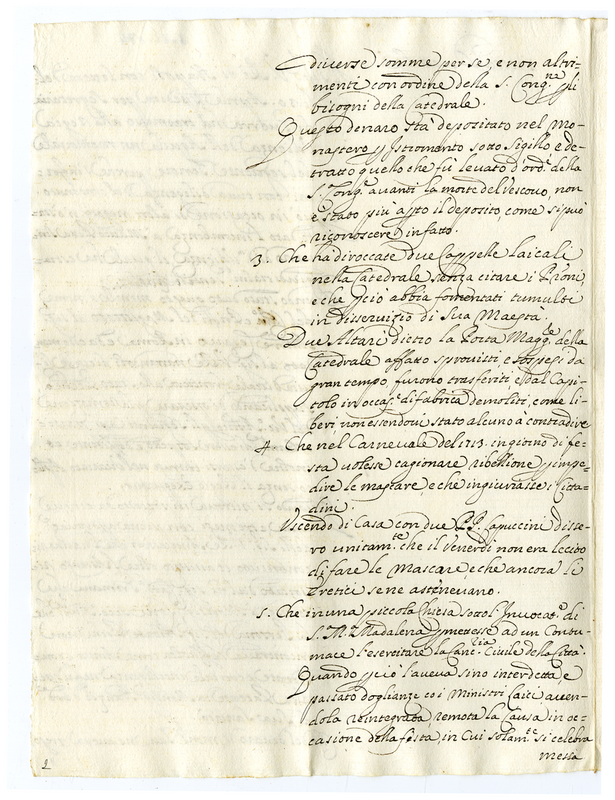 diuerse somme per se, e non altri-
menti con ordine della S. Cong.ne p gli
bisogni della Catedrale.
Questo denaro stà depositato nel Mo-
nastero p stromento sotto sigillo e de-
tratto quello che fù leuato d'ord.e della
S. Cong.e auanti la morte del Vescouo, non
è stato più apto il deposito, come si può
riconoscere in fatto.
3. Che ha diroccate due Cappelle laicali
nella Catedrale senza citare i P.roni,
e che p ciò abbia fomentati tumulti
in disseruizio di Sua Maestà.
Due Altari dietro la Porta Magg.e della
Catedrale affatto sprouisti, e sospesi da
gran tempo, furono trasferiti, e dal Capi-
tolo in occas.e di fabrica demoliti, come li-
beri non essendoui stato alcuno à contradire
4. Che nel Carneuale del 1713. in giorno di fe-
sta uolesse cagionare ribellione p impe-
dire le mascare e che ingiuriasse i Citta-
dini.
Vscendo di Casa con due PP. Capuccini disse-
ro unitam.te che il Venerdì non era lecito
di fare le mascare, e che ancora li
Eretici se ne asteneuano.
5. Che in una piccola Chiesa sotto l'Inuocat.e di
S. M.a Madalena p messe ad un Contu-
mace l'esercitare la Canc.ia Ciuile della Città.
Quando p ciò l'aueua sino interdetta, e
passato doglianze co i Ministri Laici auen-
dola reintegrata, remota la Causa, in oc-
casione della festa, in cui solam.te si celebra
messa
2